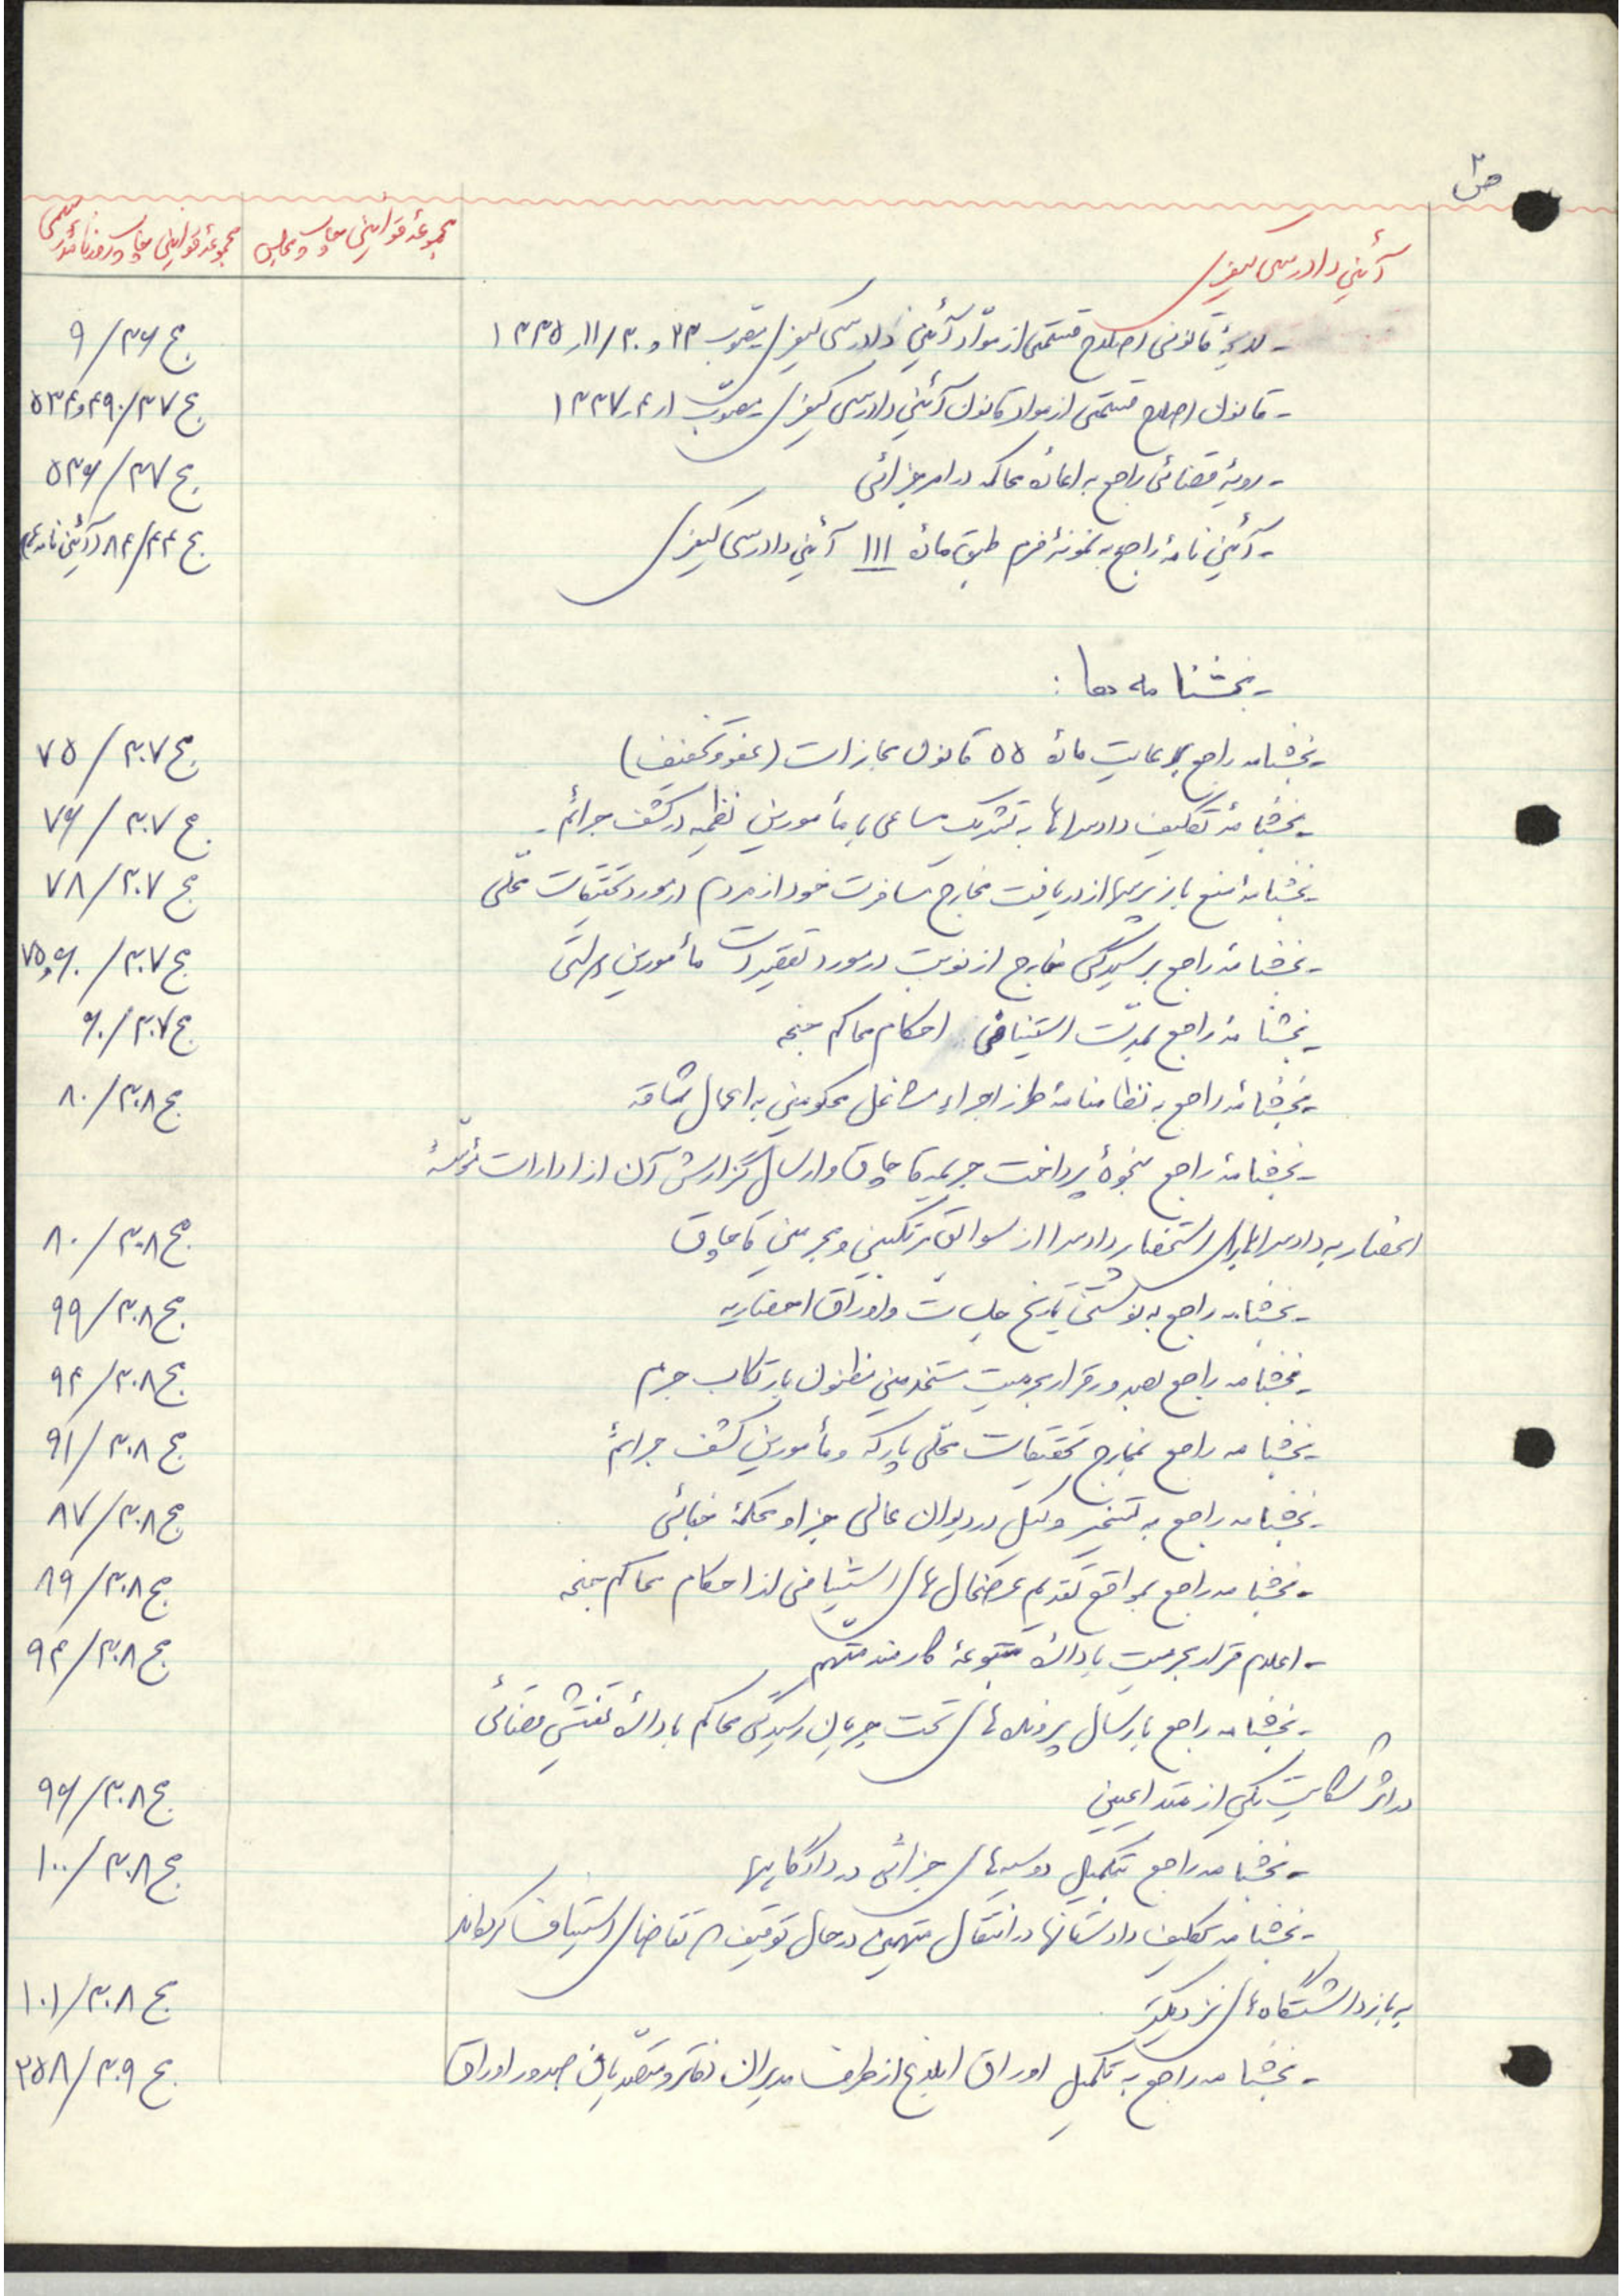 ص ۳
مجموعهٔ قوانین چاپ مجلس
مجموعهٔ قوانین چاپ روزنامهٔ رسمی
آئین دادرسی کیفری
- لایحهٔ قانونی اصلاح قسمتی از مواد آئین دادرسی کیفری مصوب ۲۳ و ۳۰/۱۱/۱۳۳۵ ج ۳۶/۹
- قانون اصلاح قسمتی از مواد قانون آئین دادرسی کیفری مصوب ۱ر۴ر۱۳۳۷ ج ۳۷/۴۹۰و۵۳۴
- رویهٔ قضائی راجع به اعادهٔ محاکمه در امر جزائی ج ۳۷/۵۳۶
- آئین نامهٔ راجع به نمونهٔ فرم طبق مادهٔ ۱۱۱ آئین دادرسی کیفری ج ۴۴/۸۴ (آئین نامه
- بخشنامه ها :
- بخشنامه راجع برعایت مادهٔ ۵۵ قانون مجازات (عفو و تخفیف) ج ۳۰۷/۷۵
- بخشنامهٔ تکلیف دادسراها به تشریک مساعی با مأمورین نظمیه در کشف جرائم . ج ۳۰۷/۷۶
- بخشنامهٔ منع بازپرسها از دریافت مخارج مسافرت خود از مردم در مورد تحقیقات محلّی ج ۳۰۷/۷۸
- بخشنامهٔ راجع برسیدگی خارج از نوبت در مورد تقصیرات مأمورین دولتی ج ۳۰۷/۶۰و۷۵
- بخشنامهٔ راجع بمدّت استینافی احکام محاکم جنحه ج ۳۰۷/۶۰
- بخشنامهٔ راجع به نظامنامهٔ طرز اجراء مشاغل محکومین به اعمال شاقه ج ۳۰۸/۸۰
- بخشنامهٔ راجع بنحوهٔ پرداخت جریمه قاچاق و ارسال گزارش آن از ادارات مؤسسهٔ
انحصار به دادسراها برای استحضار دادسرا از سوابق مرتکبین و مجرمین قاچاق ج ۳۰۸/۸۰
- بخشنامه راجع به نوشتن تاریخ جلسات و اوراق احضاریه ج ۳۰۸/۹۹
- بخشنامه راجع بصدور قرار مجرمیت مستخدمین مظنون بارتکاب جرم ج ۳۰۸/۹۴
- بخشنامه راجع بمخارج تحقیقات محلّی پارکه و مأمورین کشف جرائم ج ۳۰۸/۹۱
- بخشنامه راجع به تسخیر وکیل در دیوان عالی جزا و محکمهٔ جنائی ج ۳۰۸/۸۷
- بخشنامه راجع بمواقع تقدیم عرضحال های استینافی از احکام محاکم جنحه ج ۳۰۸/۸۹
- اعلام قرار مجرمیت بادارهٔ متبوعهٔ کارمند متّهم ج ۳۰۸/۹۴
- بخشنامه راجع بارسال پرونده های تحت جریان رسیدگی محاکم بادارهٔ تفتیش قضائی
در اثر شکایت یکی از متداعیین ج ۳۰۸/۹۶
- بخشنامه راجع بتکمیل دوسیه های جزائی در دادگاهها ج ۳۰۸/۱۰۰
- بخشنامه تکلیف دادستانها در انتقال متهمین در حال توقیف که تقاضای استیناف کرده‌اند
به بازداشتگاه های نزدیکتر ج ۳۰۸/۱۰۱
- بخشنامه راجع به تکمیل اوراق ابلاغ از طرف مدیران دفاتر و متصّدیان صدور اوراق ج ۳۰۹/۲۵۸